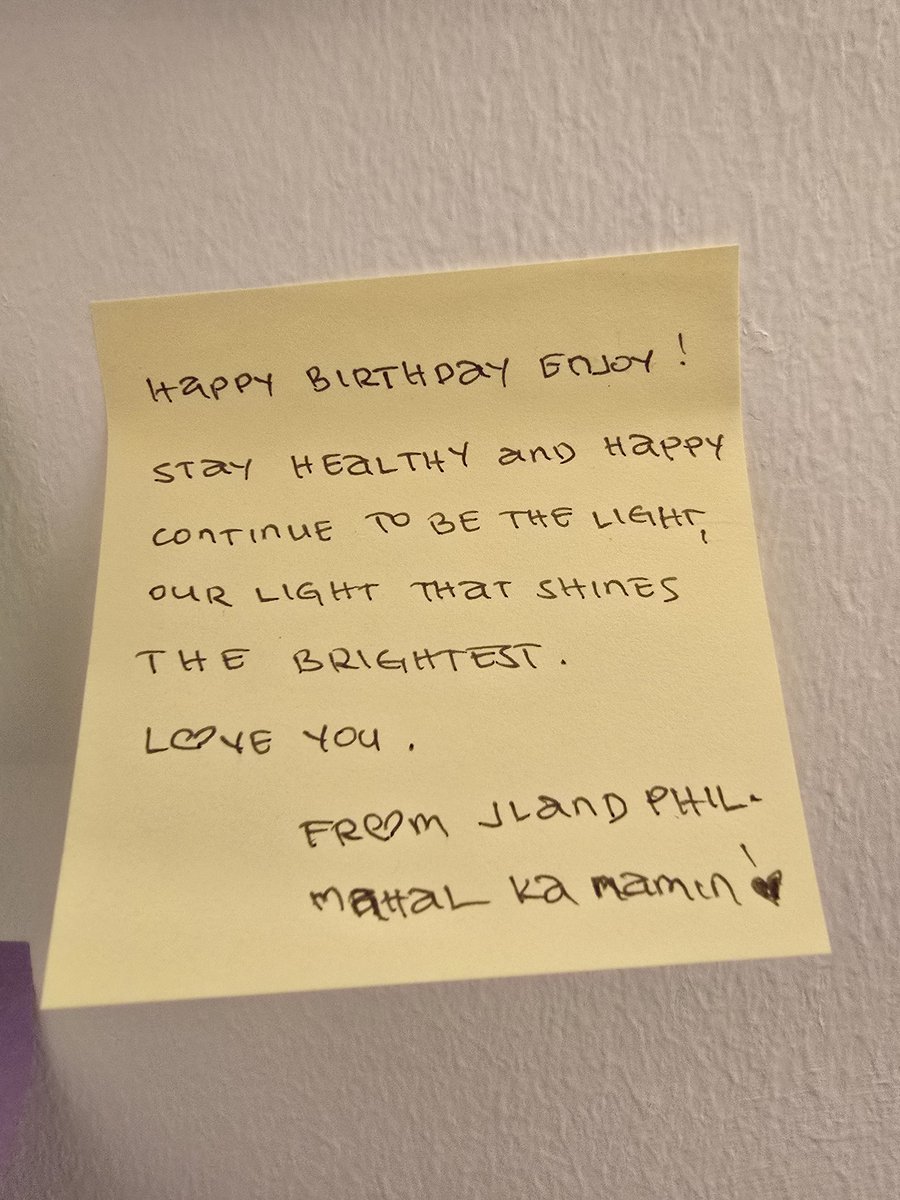 HaPPY BIRTHDaY ENJOY!
STaY HEaLTHY anD HaPPY
CONTINUE TO BE THE LIGHT,
OUR LIGHT THaT SHINES
THE BRIGHTEST.
L♡VE YOU.
FR♡M JLanD PHIL.
MaHaL Ka namin! ♥